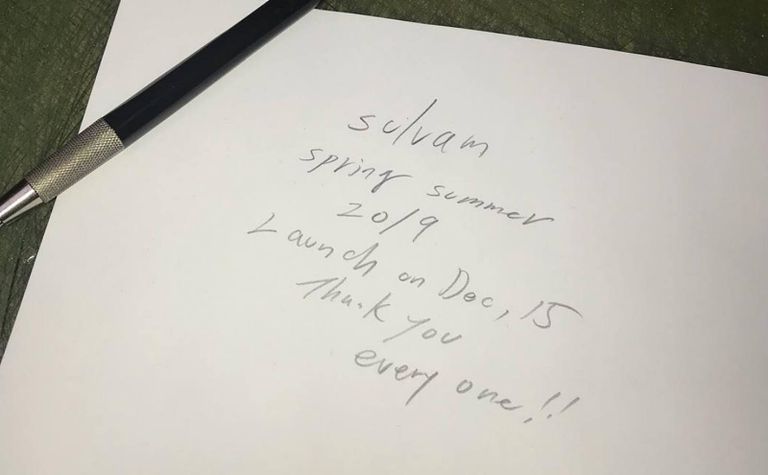 sulvam
spring summer
2019
Launch on Dec, 15
Thank you
every one!!